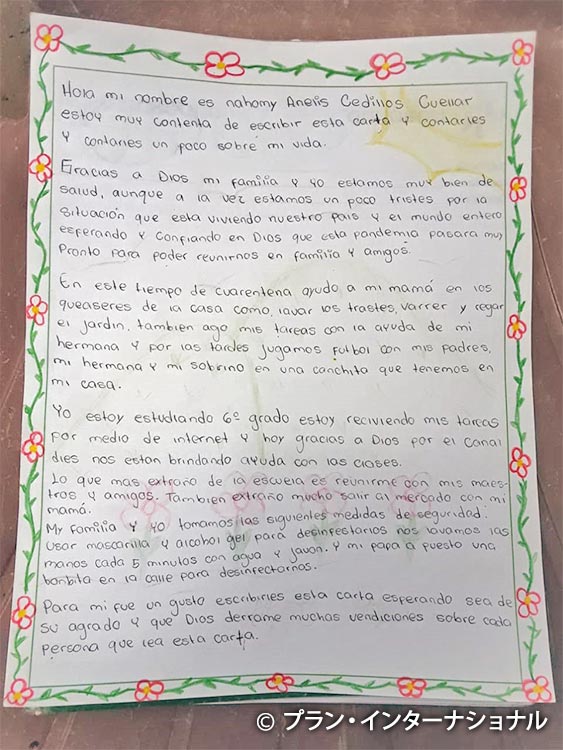 Hola mi nombre es nahomy Anelis Cedillos Cuellar
estoy muy contenta de escribir esta carta y contarles
y contarles un poco sobre mi vida.
Gracias a Dios mi familia y yo estamos muy bien de
salud, aunque a la vez estamos un poco tristes por la
situación que esta viviendo nuestro pais y el mundo entero
esperando y confiando en Dios que esta pandemia pasara muy
pronto para poder reunirnos en familia y amigos.
En este tiempo de cuarentena ayudo a mi mamá en los
queaseres de la casa como, lavar los trastes, varrer y regar
el jardin. tambien ago mis tareas con la ayuda de mi
hermana y por las tardes jugamos futbol con mis padres,
mi hermana y mi sobrino en una canchita que tenemos en
mi casa.
Yo estoy estudiando 6º grado estoy reciviendo mis tareas
por medio de internet y hoy gracias a Dios por el canal
dies nos estan brindando ayuda con las clases.
Lo que mas extraño de la escuela es reunirme con mis maes-
tros y amigos. Tambien extraño mucho salir al mercado con mi
mamá.
My familia y yo tomamos las siguientes medidas de seguridad:
Usar mascarilla y alcohol gel para desinfestarlos nos lavamos las
manos cada 5 minutos con agua y javon. Y mi papa a puesto una
bonbita en la calle para desinfectarnos.
Para mi fue un gusto escribirles esta carta esperando sea de
su agrado y que Dios derrame muchas vendiciones sobre cada
persona que lea esta carta.
© プラン・インターナショナル